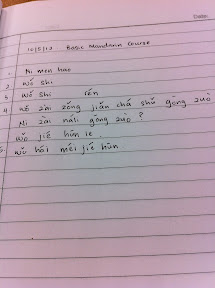 10/5/13 Basic Mandarin Course
1. Ni men hao
2 Wǒ shi
3 Wǒ shi rén
4 Wǒ zài zǒng jiǎn chá shǔ gōng zuò
Ni zài nǎli gōng zuò ?
Wǒ jié hūn le .
Wǒ hái méi jié hūn